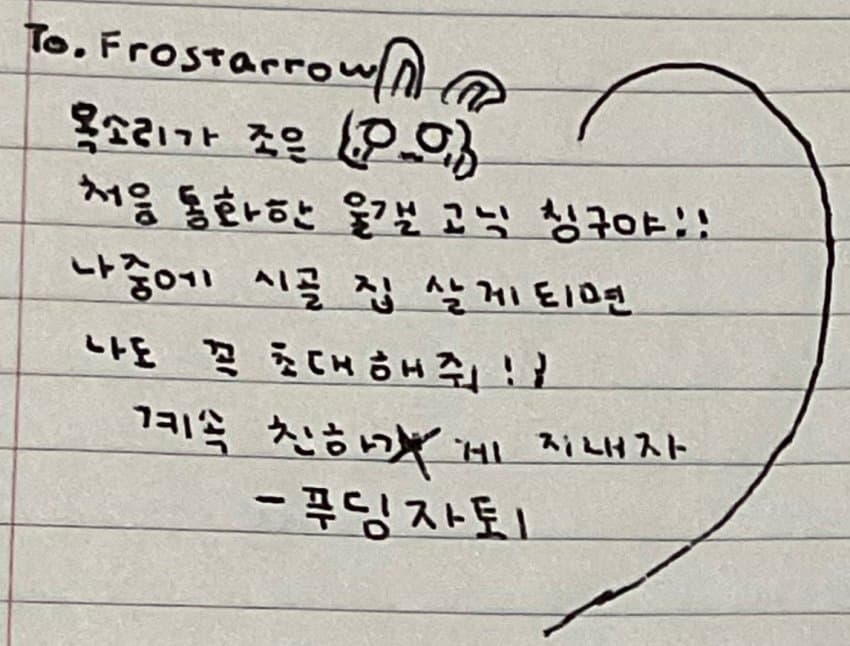 To. Frostarrow
목소리가 조은
처음 통화한 울갤 고닉 칭구야!!
나중에 시골 집 살게되면
나도 꼭 초대해줘!!
계속 친하게 지내자
- 푸딩자토